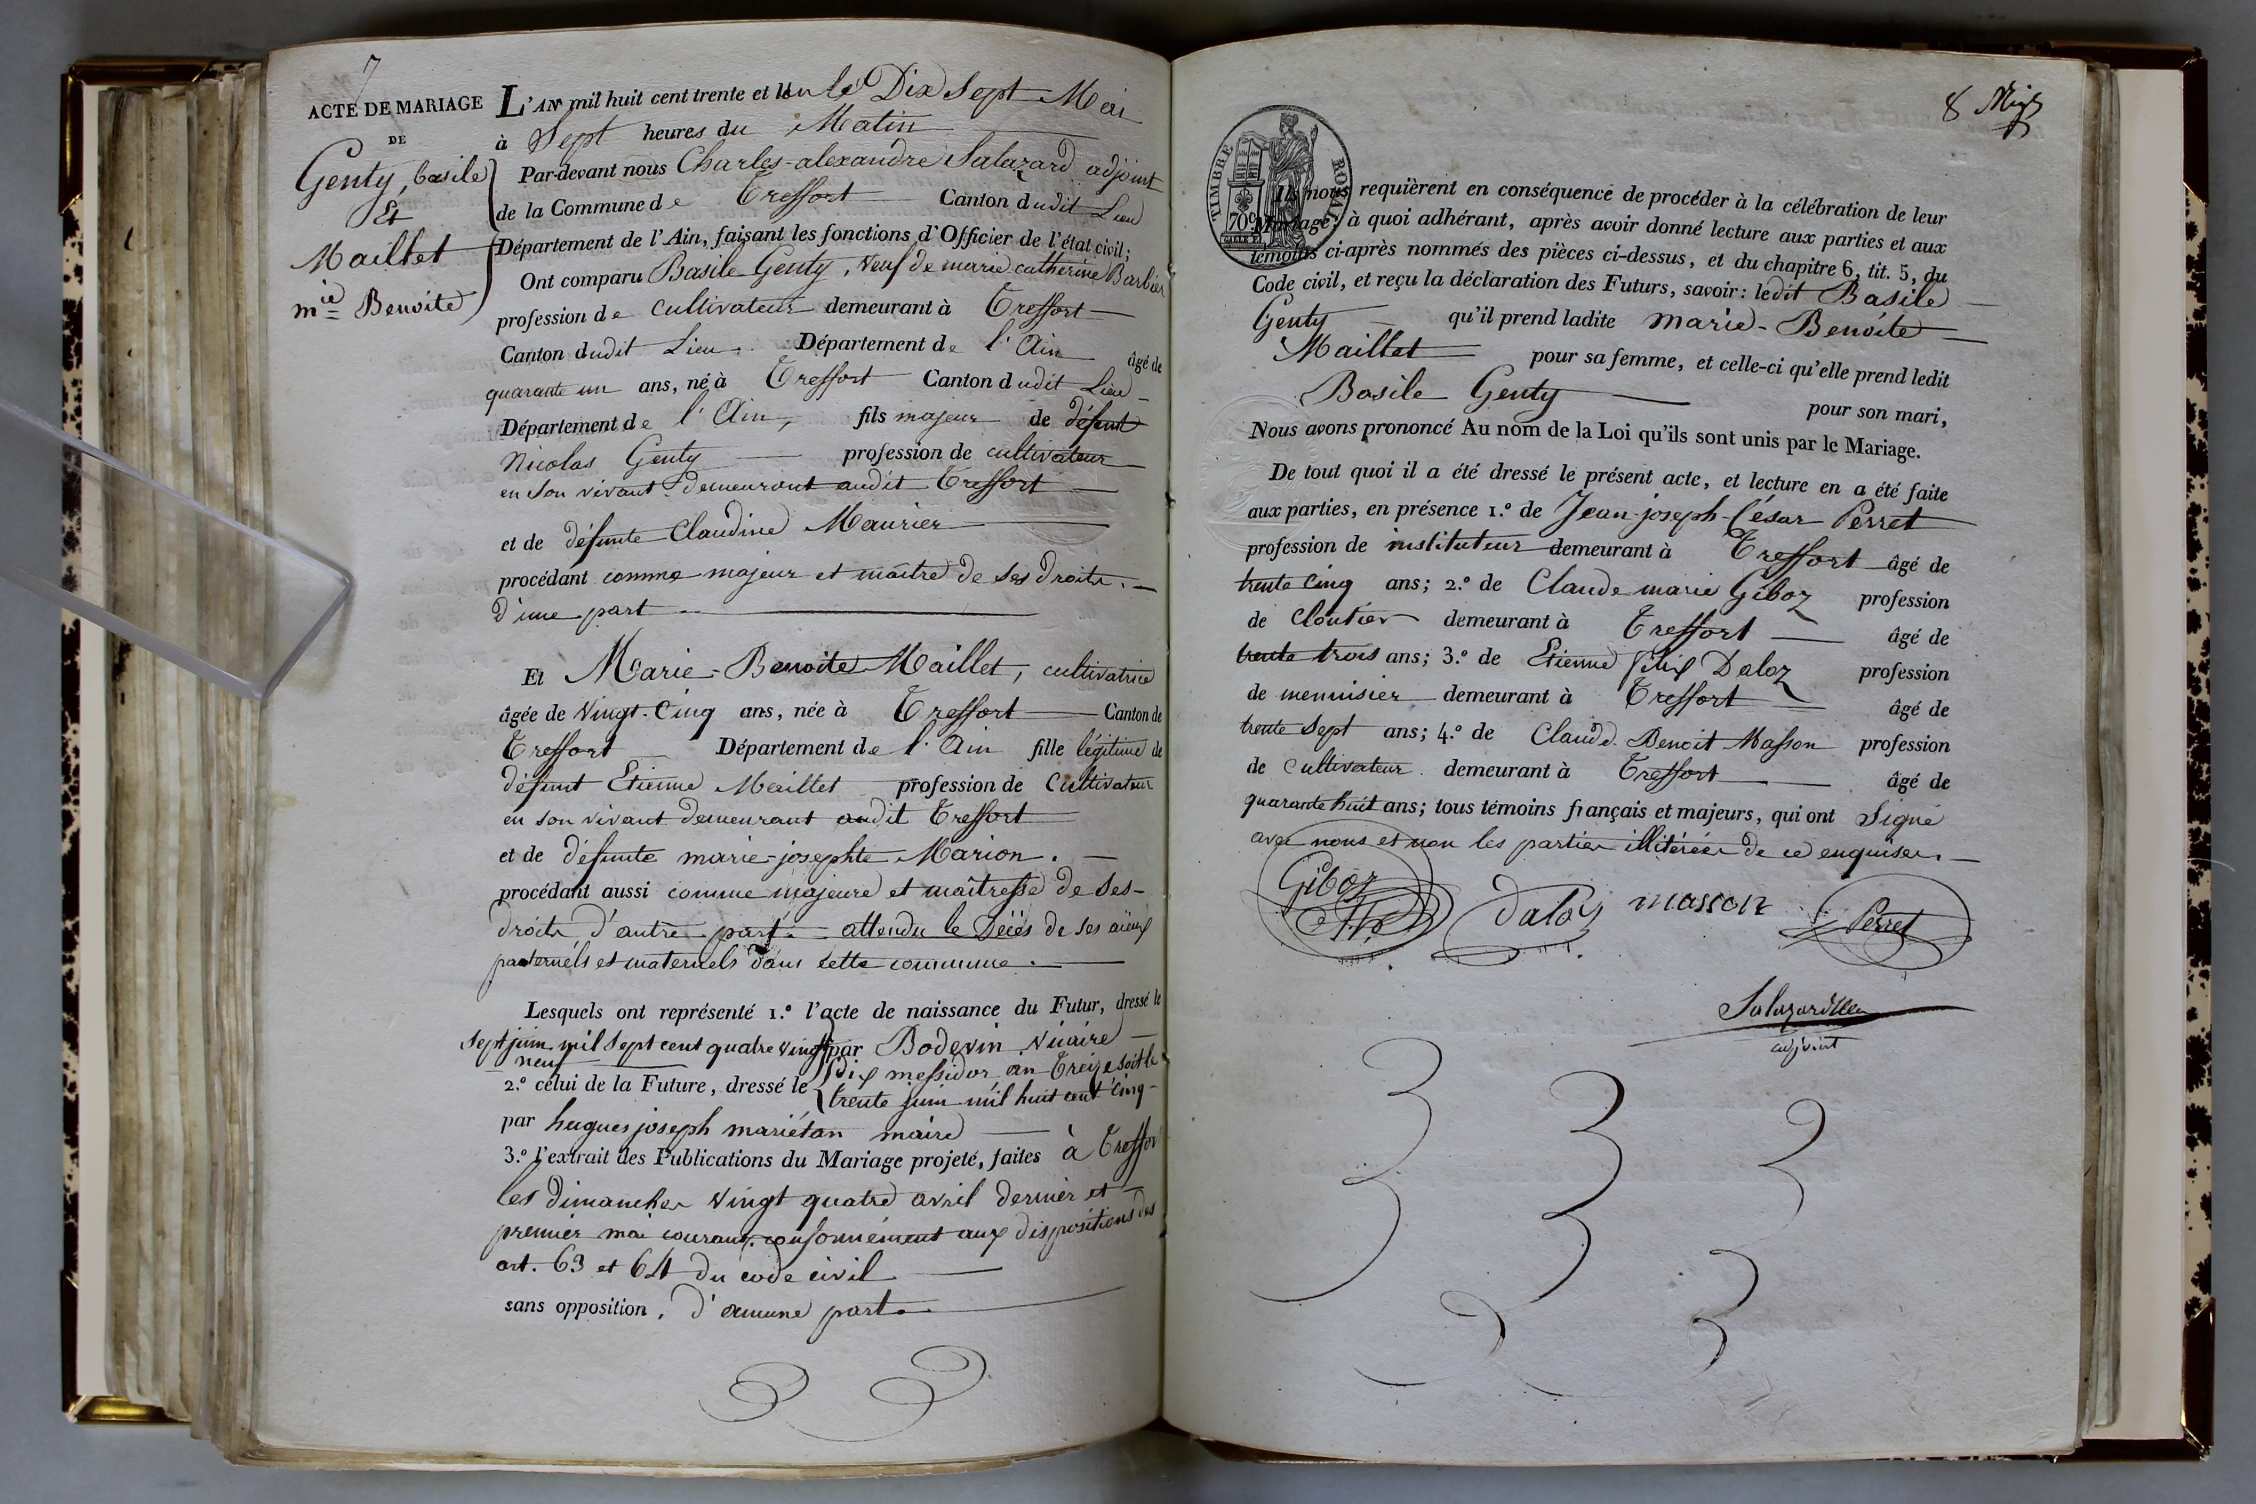 7
ACTE DE MARIAGE
DE
Genty, basile
Et
Maillet
mie Benoite
L'AN mil huit cent trente et un le Dix Sept Mai
à Sept heures du Matin
Par-devant nous Charles-alexandre Salazard adjoint
de la Commune de Treffort Canton dudit Lieu
Département de l'Ain, faisant les fonctions d'Officier de l'état civil;
Ont comparu Basile Genty, veuf de marie catherine Barbier
profession de cultivateur demeurant à Treffort
Canton dudit Lieu Département de l'Ain âgé de
quarante un ans, né à Treffort Canton dudit Lieu
Département de l'Ain, fils majeur de défunt
Nicolas Genty profession de cultivateur
en son vivant demeurant audit Treffort
et de défunte Claudine Maurier
procédant comme majeur et maître de ses droits.
d'une part
Et Marie-Benoite Maillet, cultivatrice
âgée de vingt-cinq ans, née à Treffort Canton de
Treffort Département de l'Ain fille légitime de
défunt Etienne Maillet profession de cultivateur
en son vivant demeurant audit Treffort
et de défunte marie-josephte Marion.
procédant aussi comme majeure et maîtresse de ses
droits d'autre part. attendu le décès de ses aïeux
paternels et maternels dans cette commune.
Lesquels ont représenté 1.º l'acte de naissance du Futur, dressé le
Sept juin mil sept cent quatre vingt par Bodevin vicaire
neuf
2.º celui de la Future, dressé le dix messidor an treize soit le
trente juin mil huit cent cinq
par hugues joseph mariétan maire
3.º l'extrait des Publications du Mariage projeté, faites à Treffort
les dimanches vingt quatre avril dernier et
premier mai courant, conformément aux dispositions des
art. 63 et 64 du code civil
sans opposition, d'aucune part.
8
Ils nous requièrent en conséquence de procéder à la célébration de leur
Mariage; à quoi adhérant, après avoir donné lecture aux parties et aux
témoins ci-après nommés des pièces ci-dessus, et du chapitre 6, tit. 5, du
Code civil, et reçu la déclaration des Futurs, savoir: ledit Basile
Genty qu'il prend ladite marie-Benoite
Maillet pour sa femme, et celle-ci qu'elle prend ledit
Basile Genty pour son mari,
Nous avons prononcé Au nom de la Loi qu'ils sont unis par le Mariage.
De tout quoi il a été dressé le présent acte, et lecture en a été faite
aux parties, en présence 1.º de Jean-joseph-César Perret
profession de instituteur demeurant à Treffort âgé de
trente cinq ans; 2.º de Claude marie Giboz profession
de cloutier demeurant à Treffort âgé de
trente trois ans; 3.º de Etienne félix Daloz profession
de menuisier demeurant à Treffort âgé de
trente sept ans; 4.º de Claude Benoit Masson profession
de cultivateur demeurant à Treffort âgé de
quarante huit ans; tous témoins français et majeurs, qui ont signé
avec nous et non les parties illitérées de ce enquises.
Giboz
daloz
masson
Perret
Salazard
adjoint
TIMBRE ROYAL
70c